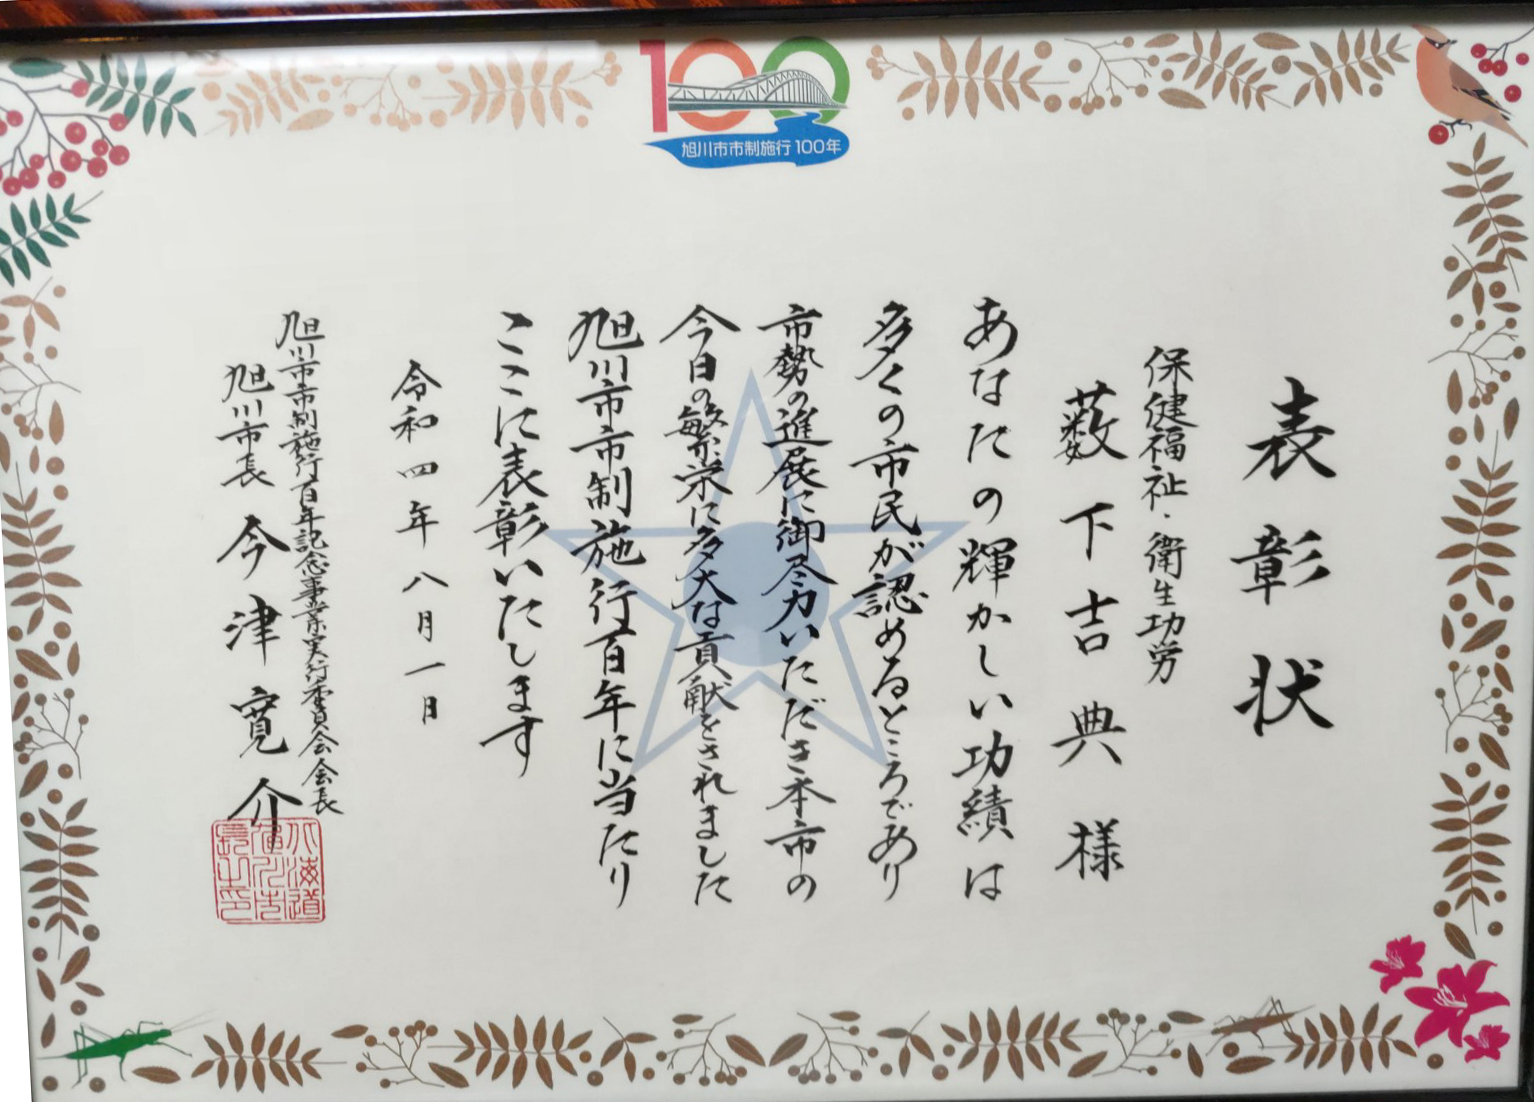 100
旭川市市制施行100年
表彰状
保健福祉・衛生功労
薮下吉典様
あなたの輝かしい功績は
多くの市民が認めるところであり
市勢の進展に御尽力いただき本市の
今日の繁栄に多大な貢献をされました
旭川市市制施行百年に当たり
ここに表彰いたします
令和四年八月一日
旭川市市制施行百年記念事業実行委員会会長
旭川市長 今津寛介
北海道
旭川市
長之印